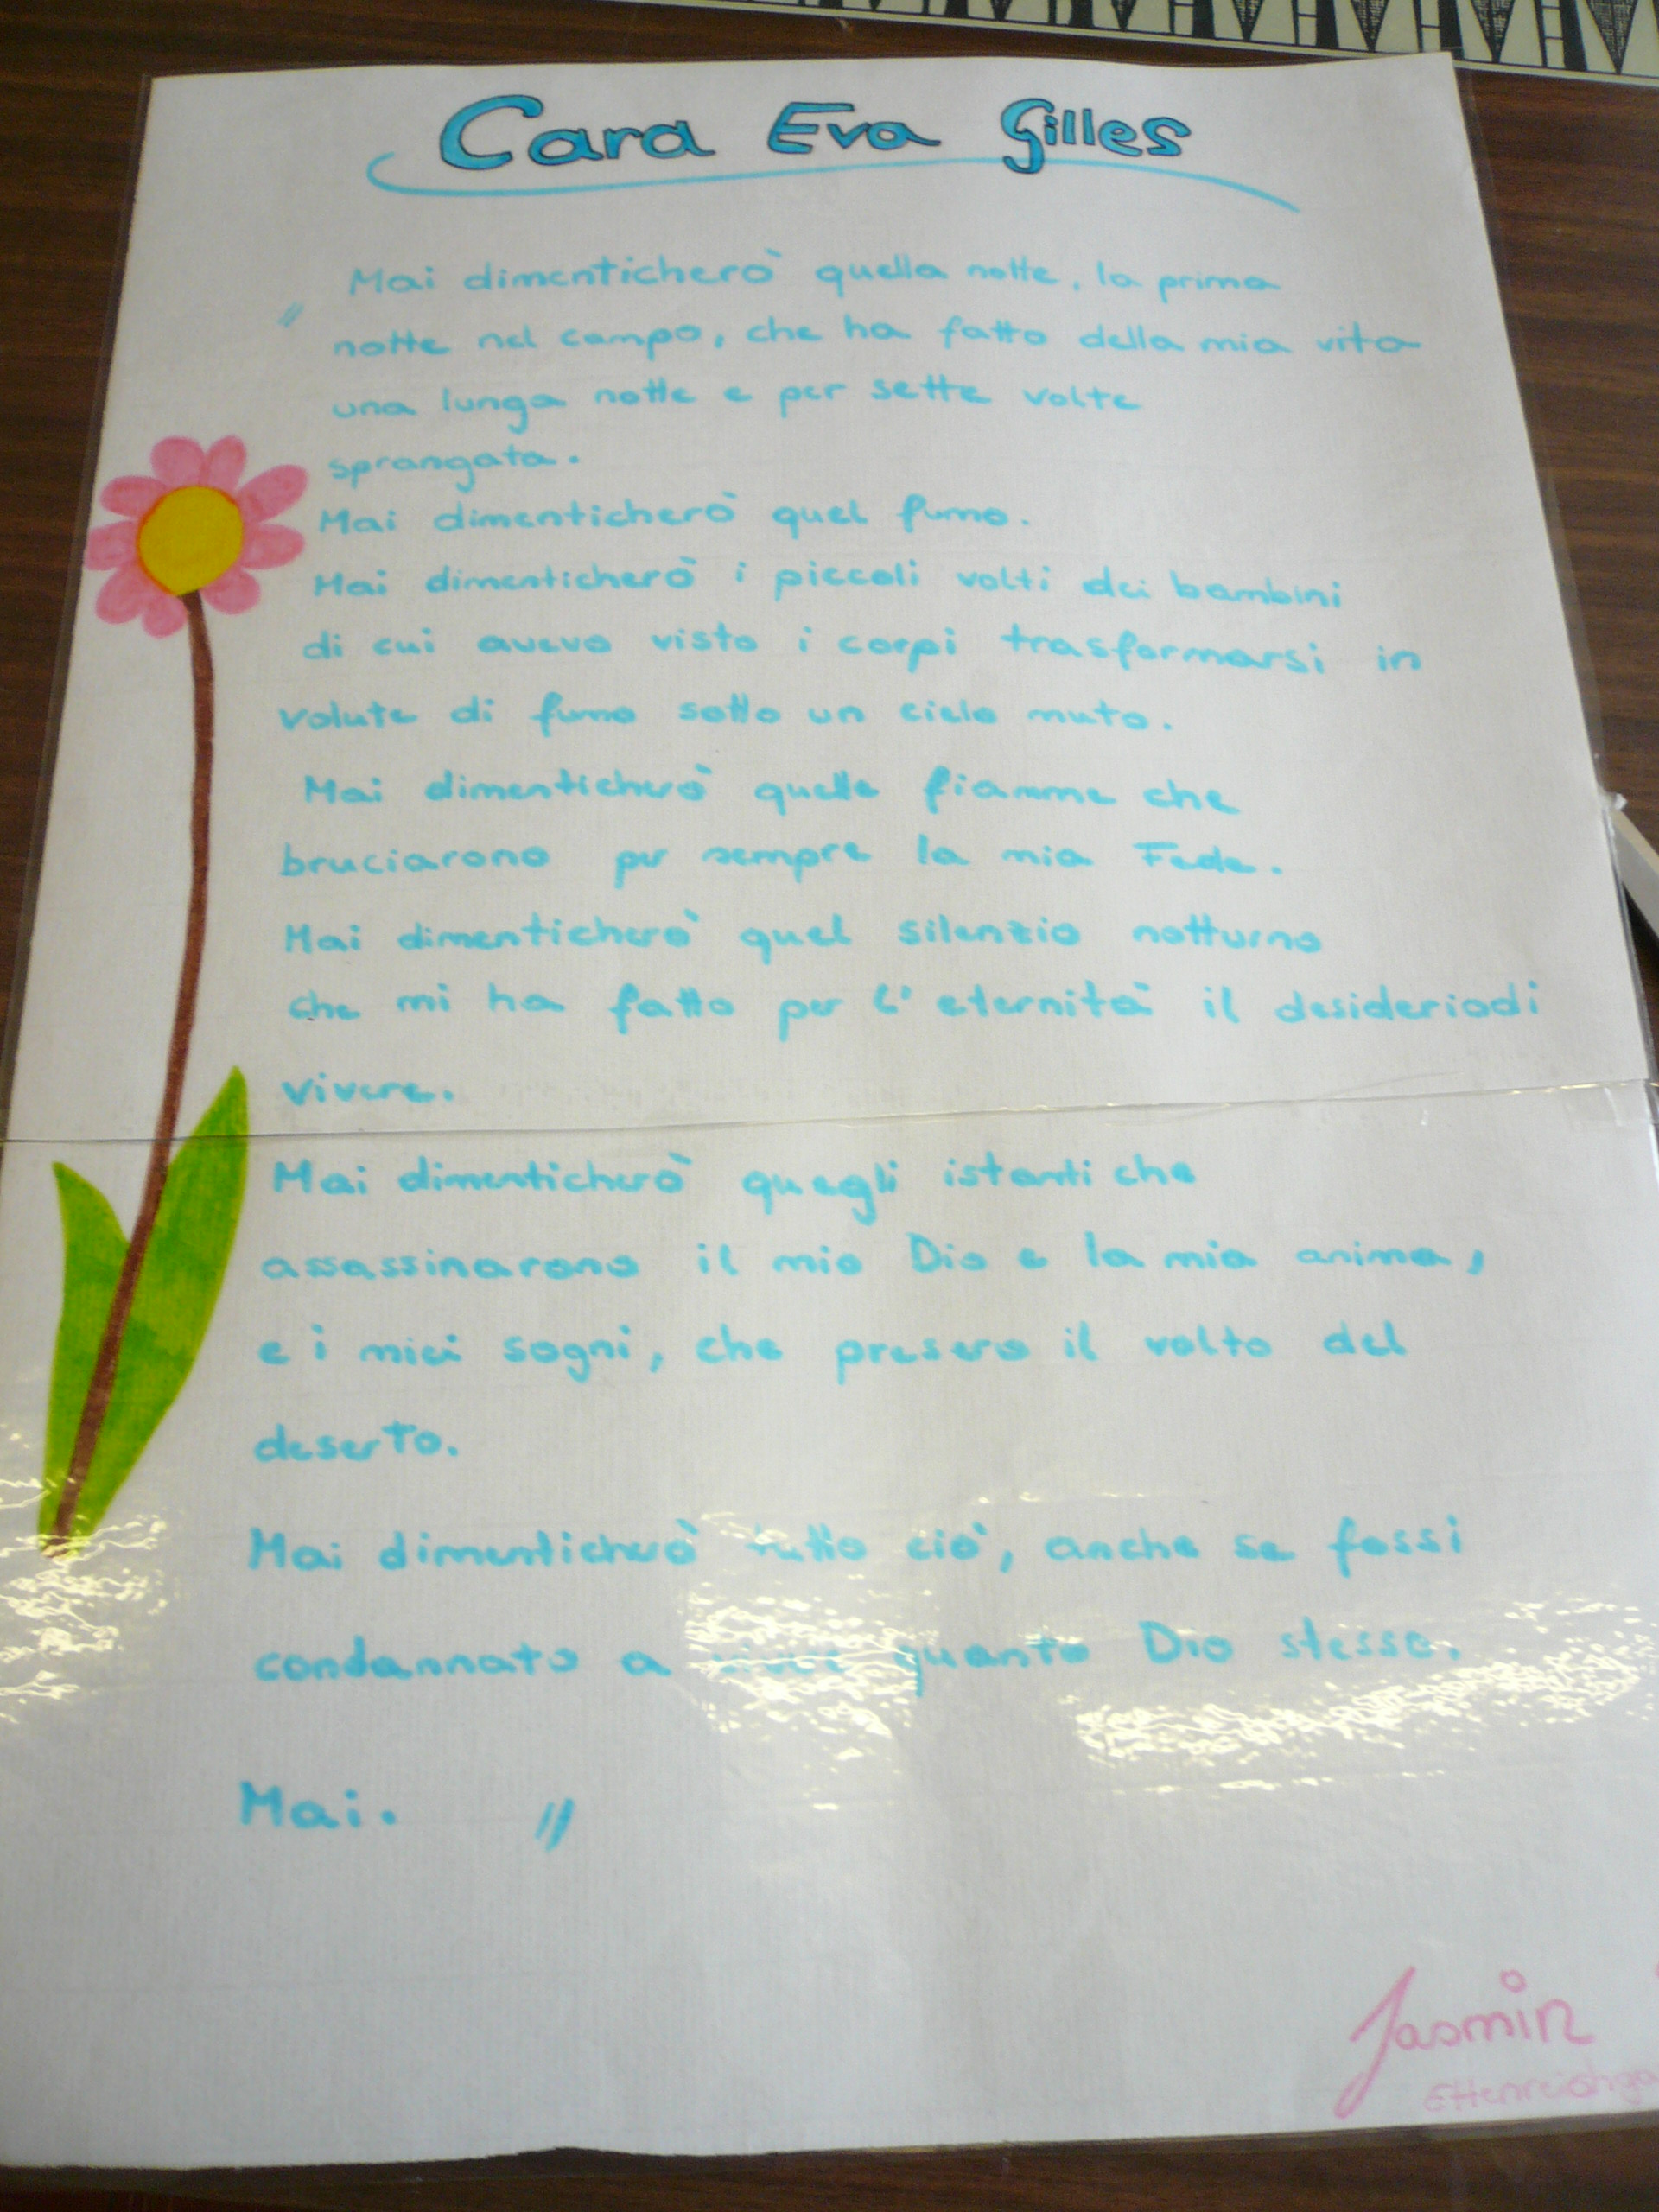 Cara Eva Gilles
" Mai dimenticherò quella notte, la prima
notte nel campo, che ha fatto della mia vita
una lunga notte e per sette volte
sprangata.
Mai dimenticherò quel fumo.
Mai dimenticherò i piccoli volti dei bambini
di cui avevo visto i corpi trasformarsi in
volute di fumo sotto un cielo muto.
Mai dimenticherò quelle fiamme che
bruciarono per sempre la mia Fede.
Mai dimenticherò quel silenzio notturno
che mi ha fatto per l'eternità il desideriodi
vivere.
Mai dimenticherò quegli istanti che
assassinarono il mio Dio e la mia anima,
e i miei sogni, che presero il volto del
deserto.
Mai dimenticherò tutto ciò, anche se fossi
condannato a vivere quanto Dio stesso.
Mai. "
Jasmin